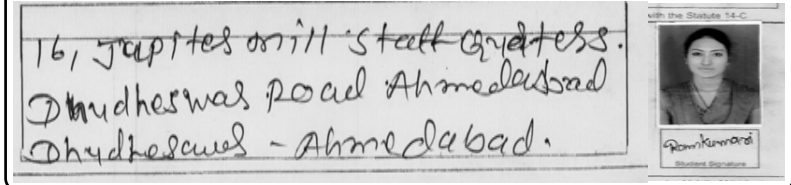 16, Jupites mill staff Quotess.
Dhudheswas Road Ahmedabad
Dhudhesaues - Ahmedabad.
with the Statute 54-C
Ramkumari
Student Signature